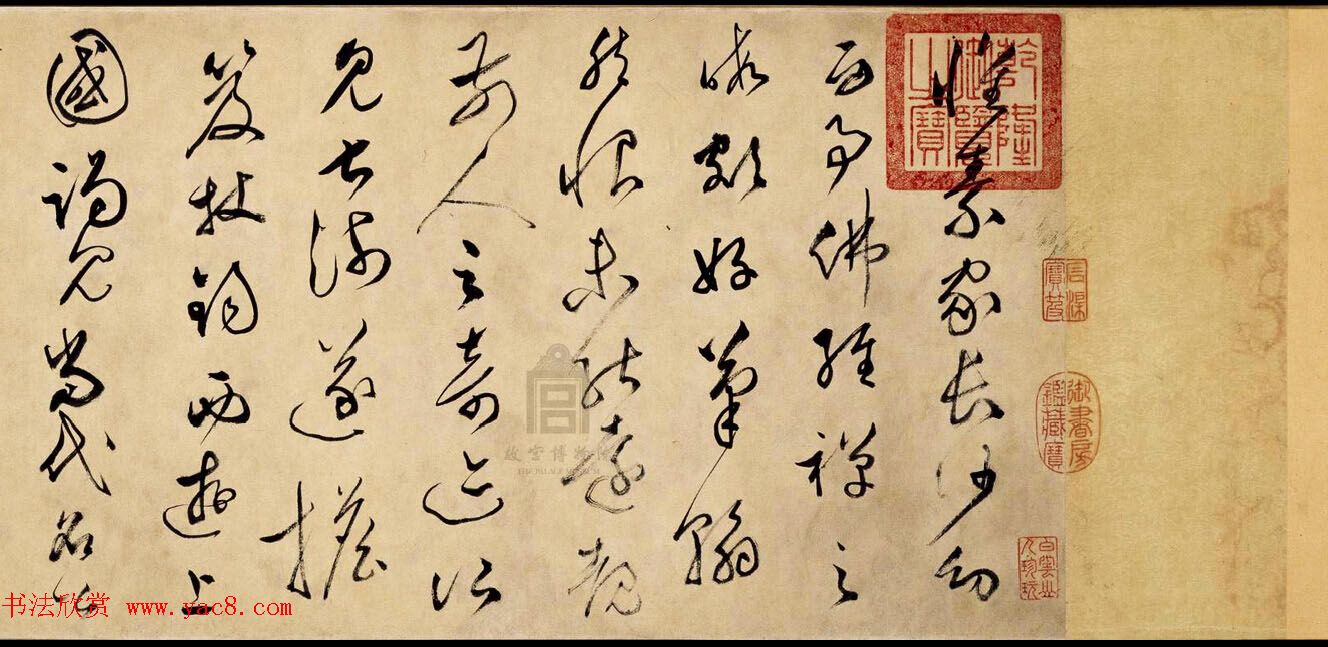 懷素家長沙幼
而事佛經禪之
暇頗好筆翰
然恨未能遠覩
前人之奇迹所
見甚淺遂擔
笈杖錫西遊上
國謁見當代名公
乾隆御覽之寶
石渠寶笈
御書房鑑藏寶
故宫博物院
THE PALACE MUSEUM
书法欣赏 www.yac8.com